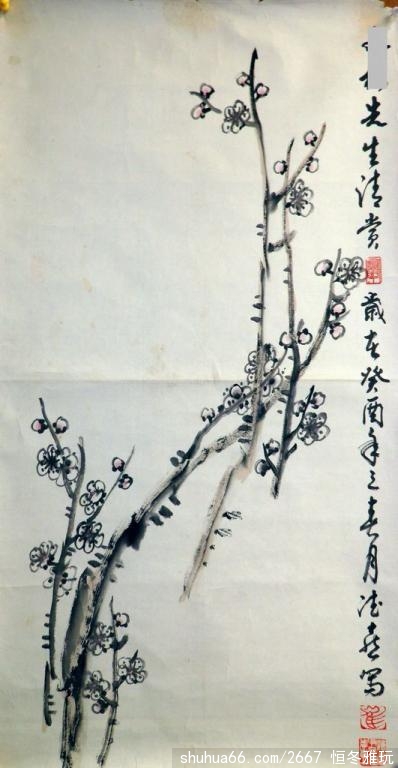 先生清赏
歲在癸酉年之春月德森写
shuhua66.com/2667 恒冬雅玩